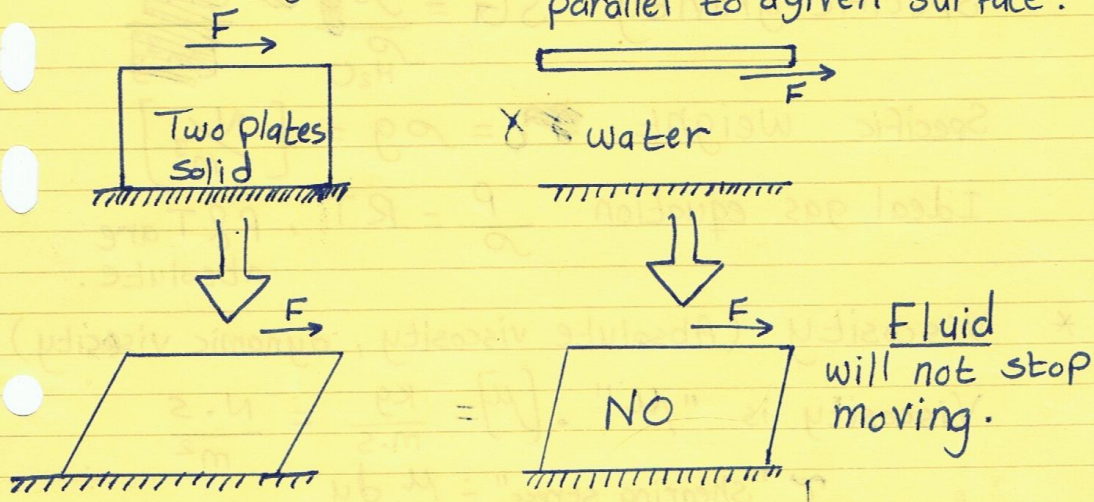 parallel to a given surface.
F
Two plates
solid
F
water
F
F
NO
=
Fluid
will not stop
moving.